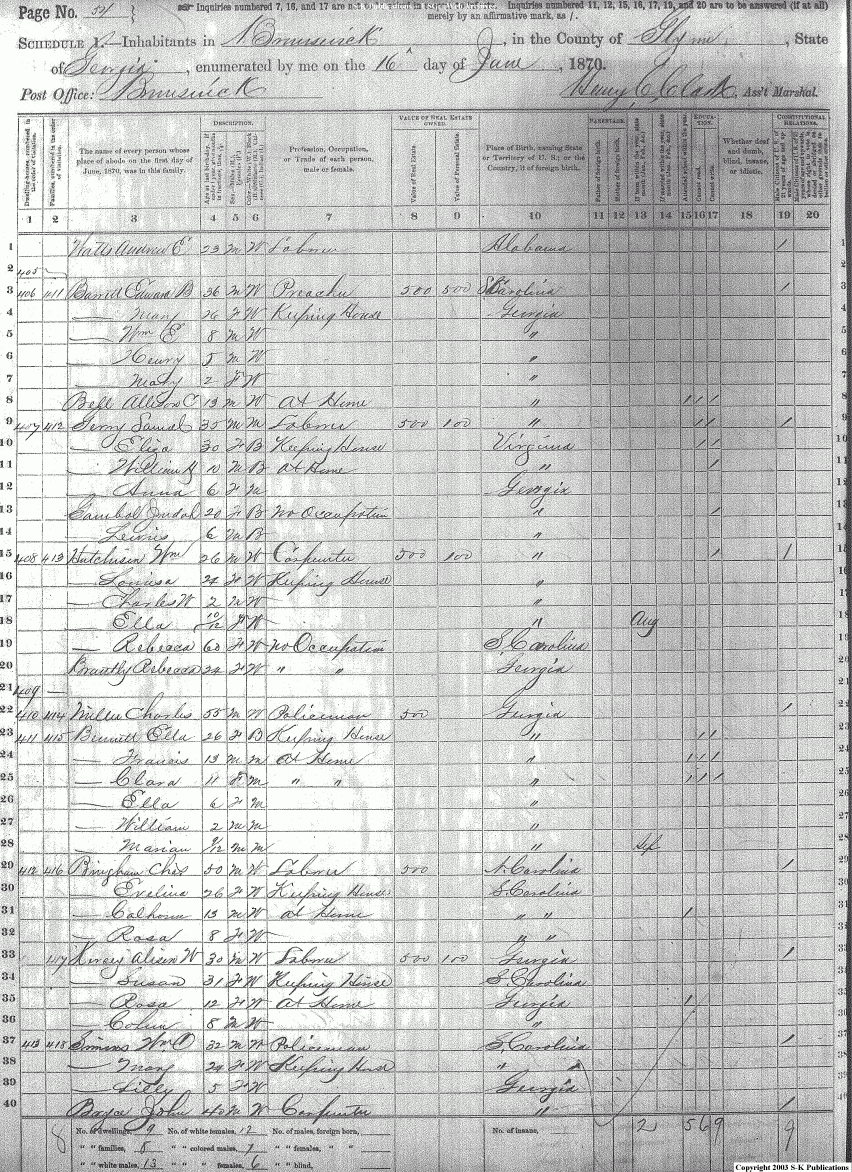 Page No. 52
Inquiries numbered 7, 16, and 17 are not to be asked in respect to infants. Inquiries numbered 11, 12, 15, 16, 17, 19, and 20 are to be answered (if at all) merely by an affirmative mark, as /.
SCHEDULE 1.—Inhabitants in Brunswick, in the County of Glynn, State
of Georgia, enumerated by me on the 16 day of June, 1870.
Post Office: Brunswick Henry C. Clark, Ass't Marshal.
DESCRIPTION. VALUE OF REAL ESTATE OWNED. PARENTAGE. EDUCATION. CONSTITUTIONAL RELATIONS.
Dwelling-houses, numbered in the order of visitation.
Families, numbered in the order of visitation.
The name of every person whose place of abode on the first day of June, 1870, was in this family.
Profession, Occupation, or Trade of each person, male or female.
Value of Real Estate.
Value of Personal Estate.
Place of Birth, naming State or Territory of U. S.; or the Country, if of foreign birth.
Father of foreign birth.
Mother of foreign birth.
Attended school within the year.
Cannot read.
Cannot write.
Whether deaf and dumb, blind, insane, or idiotic.
1 2 3 4 5 6 7 8 9 10 11 12 13 14 15 16 17 18 19 20
1 Watts Andrew E 23 M W Laborer Alabama / 1
2 405 — 2
3 406 411 Barrett Edward B 36 M W Preacher 500 500 S Carolina / 3
4 — Mary 26 F W Keeping House Georgia 4
5 — Wm E 8 M W " 5
6 — Henry 5 M W " 6
7 — Mary 2 F W " 7
8 Bell Allison C 13 M W At Home " / / / 8
9 407 412 Gerry Samuel 35 M M Laborer 500 100 " / / / 9
10 — Eliza 30 F B Keeping House Virginia / / 10
11 — William H 10 M B At Home " / 11
12 — Anna 6 F M Georgia 12
13 Gambol Judah 20 F B No Occupation " / 13
14 — Lewis 6 M B " 14
15 408 413 Hutchison Wm 26 M W Carpenter 500 100 " / / 15
16 — Louisa 24 F W Keeping House " 16
17 — Charles W 2 M W " 17
18 — Ella 10/12 F W " Aug 18
19 — Rebecca 60 F W No Occupation S. Carolina 19
20 Brantly Rebecca 24 F W " " Georgia 20
21 409 — 21
22 410 414 Miller Charles 55 M W Policeman 500 Georgia / 22
23 411 415 Bennett Ella 26 F B Keeping House " / / 23
24 — Francis 13 M M At Home " / / / 24
25 — Clara 11 F M " " " / / / 25
26 — Ella 6 F M " 26
27 — William 2 M M " 27
28 — Marian 9/12 M M " Sep 28
29 412 416 Bingham Chas 50 M W Laborer 500 N. Carolina / 29
30 — Evelina 26 F W Keeping House S. Carolina 30
31 — Calhoun 13 M W At Home " " / 31
32 — Rosa 8 F W " " 32
33 417 Kersey Alison W 30 M W Laborer 500 100 Georgia / 33
34 — Susan 31 F W Keeping House S. Carolina 34
35 — Rosa 12 F W At Home Georgia / 35
36 — Colun 8 M W " 36
37 413 418 Simins Wm O 32 M W Policeman S. Carolina / 37
38 — Mary 29 F W Keeping House " " 38
39 — Lilly 5 F W Georgia 39
40 Bryce John 40 M W Carpenter " / 40
8 No. of dwellings, 9 No. of white females, 12 No. of males, foreign born, No. of insane, 2 5 6 9 9
" " families, 8 " " colored males, 7 " " females, " "
" " white males, 13 " " " females, 6 " " blind,
Copyright 2003 S-K Publications